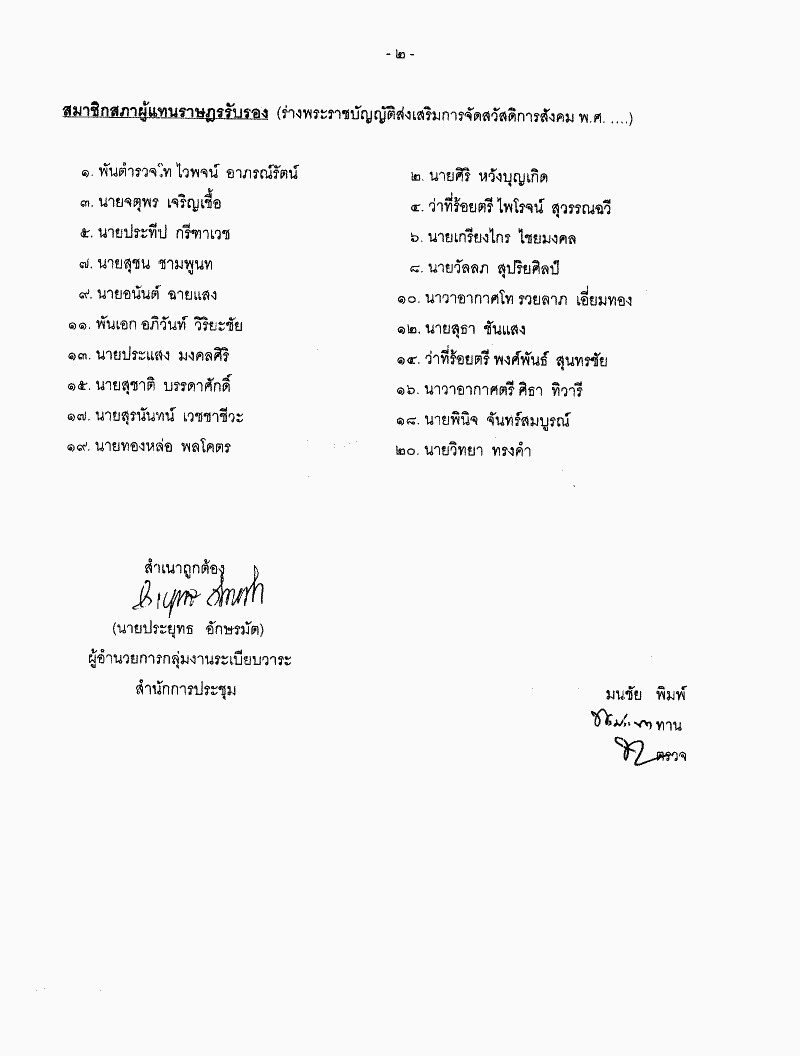 - ๒ -
สมาชิกสภาผู้แทนราษฎรรับรอง (ร่างพระราชบัญญัติส่งเสริมการจัดสวัสดิการสังคม พ.ศ. ....)
๑. พันตำรวจโท ไวพจน์ อาภรณ์รัตน์ ๒. นายศิริ หวังบุญเกิด
๓. นายจตุพร เจริญเชื้อ ๔. ว่าที่ร้อยตรี ไพโรจน์ สุวรรณฉวี
๕. นายประทีป กรีฑาเวช ๖. นายเกรียงไกร ไชยมงคล
๗. นายสุชน ชามพูนท ๘. นายวัลลภ สุปริยศิลป์
๙. นายอนันต์ ฉายแสง ๑๐. นาวาอากาศโท รวยลาภ เอี่ยมทอง
๑๑. พันเอก อภิวันท์ วิริยะชัย ๑๒. นายสุธา ชันแสง
๑๓. นายประแสง มงคลศิริ ๑๔. ว่าที่ร้อยตรี พงศ์พันธ์ สุนทรชัย
๑๕. นายสุชาติ บรรดาศักดิ์ ๑๖. นาวาอากาศตรี ศิธา ทิวารี
๑๗. นายสุรนันทน์ เวชชาชีวะ ๑๘. นายพินิจ จันทร์สมบูรณ์
๑๙. นายทองหล่อ พลโคตร ๒๐. นายวิทยา ทรงคำ
สำเนาถูกต้อง
(นายประยุทธ อักษรมัต)
ผู้อำนวยการกลุ่มงานระเบียบวาระ
สำนักการประชุม
มนชัย พิมพ์
ทาน
ตรวจ